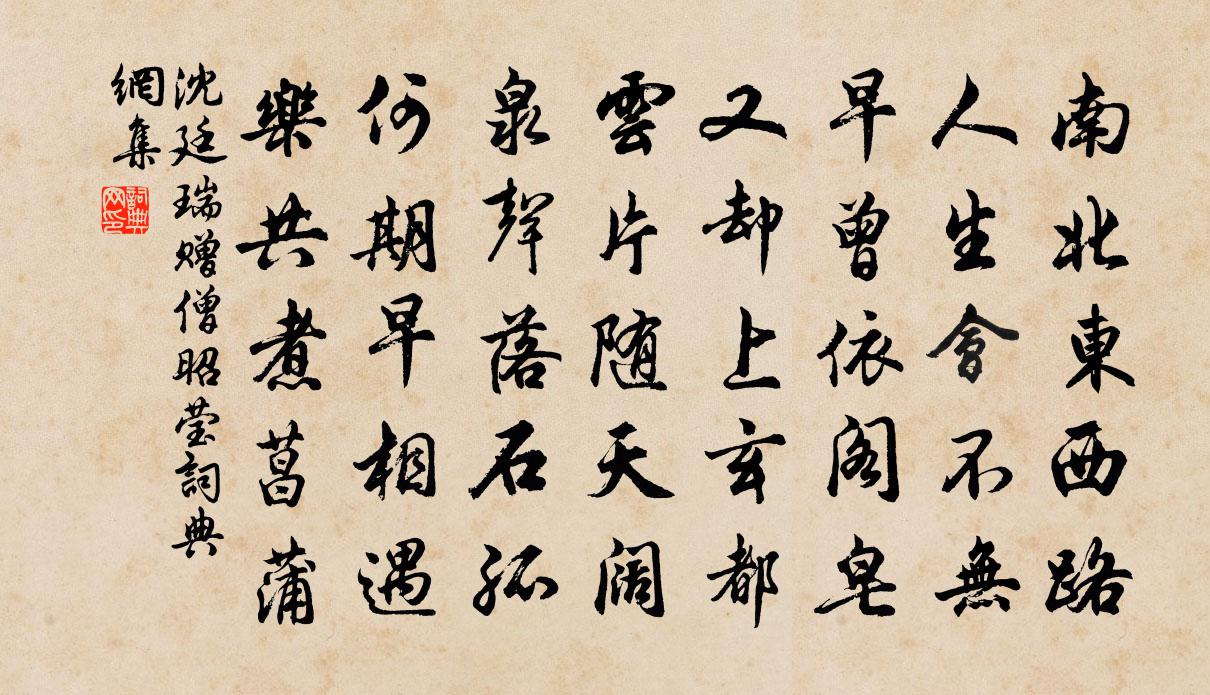 南北東西路
人生會不無
早曾依閣皂
又却上玄都
雲片随天闊
泉聲落石孤
何期早相遇
樂共煮菖蒲
沈廷瑞贈僧昭瑩詞典
網集
詞典
网印